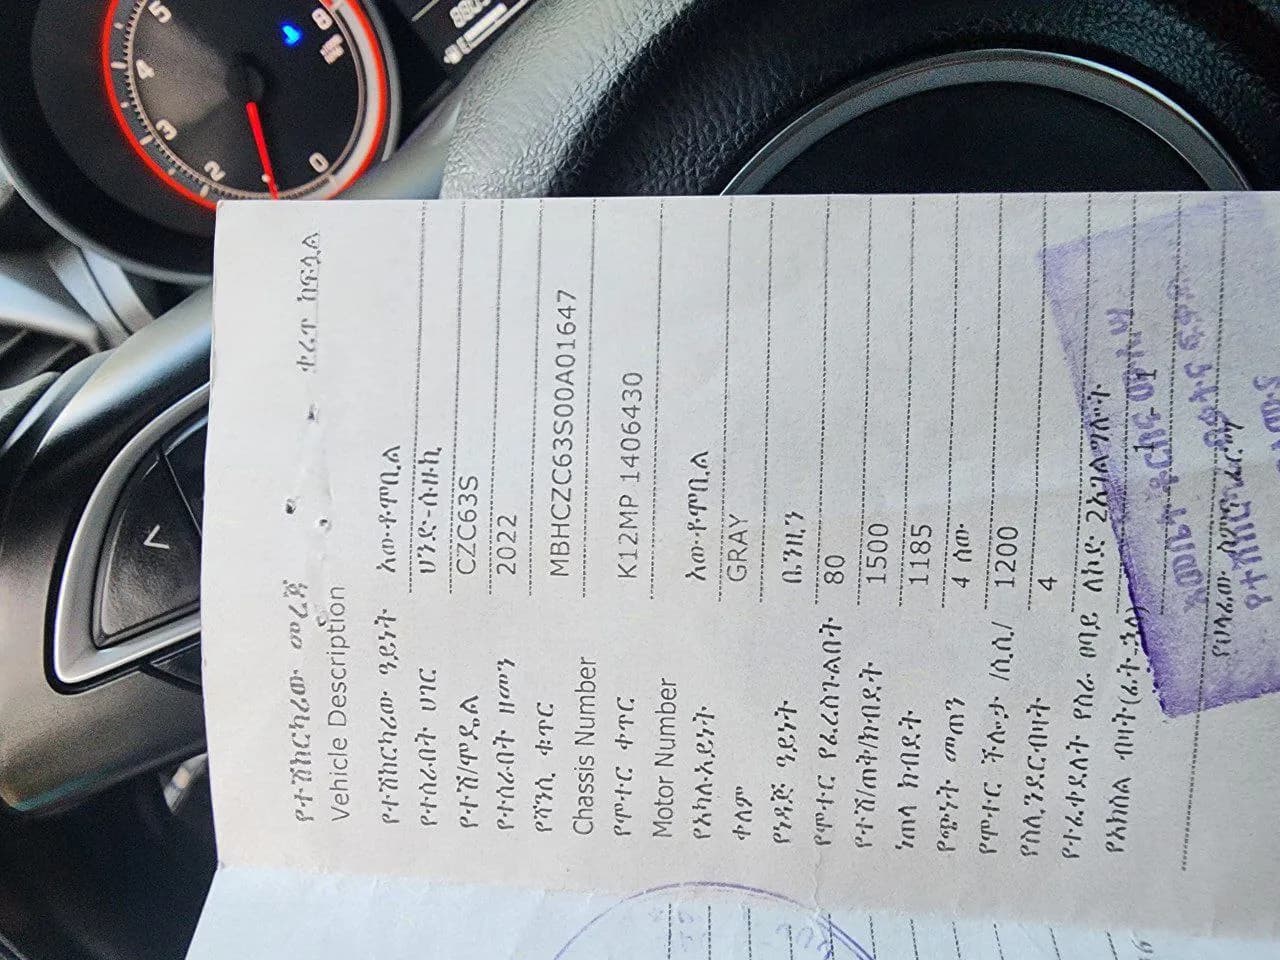 የተሽከርካሪው መረጃ
Vehicle Description
የተሽከርካሪው ዓይነት አውቶሞቢል
የተሰራበት ሀገር ህንድ-ሱዙኪ
የተሽ/ሞዴል CZC63S
የተሰራበት ዘመን 2022
የሻንሲ ቁጥር
Chassis Number MBHCZC63S00A01647
የሞተር ቀጥር
Motor Number K12MP 1406430
የአካል-አይነት አውቶሞቢል
ቀለም GRAY
የነዳጅ ዓይነት ቤንዚን
የሞተር የፈረስጉልበት 80
የተሽ/ጠቅ/ክብደት 1500
ነጠላ ክብደት 1185
የጭነት መጠን 4 ሰው
የሞተር ችሎታ /ሲሲ/ 1200
የሲሊንደርብዛት 4
የተፈቀደለት የስራ ፀባይ ለኮድ 2አገልግሎት
የአክስል ብዛት 1
የሀላፊው
5 4 3 2 0 8